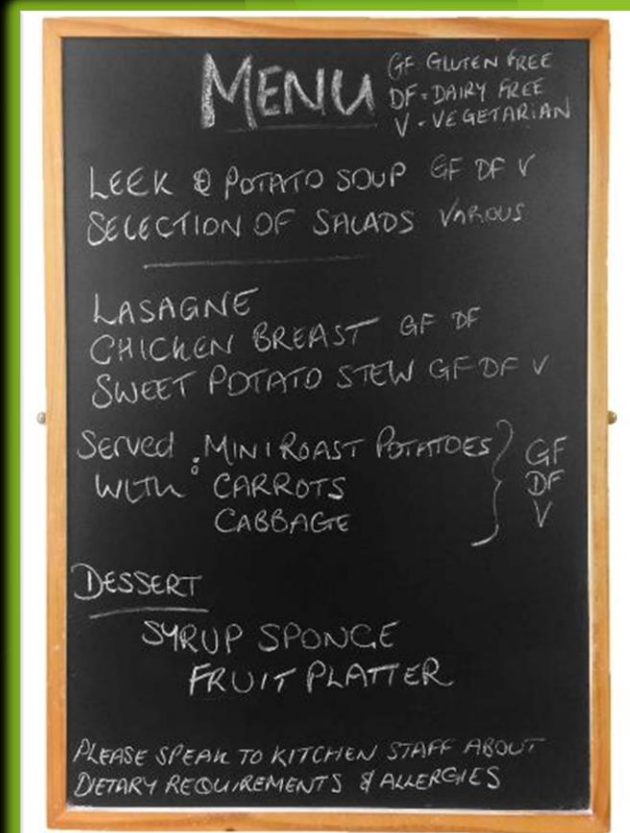 MENU
GF GLUTEN FREE
DF = DAIRY FREE
V - VEGETARIAN
LEEK & POTATO SOUP GF DF V
SELECTION OF SALADS VARIOUS
LASAGNE
CHICKEN BREAST GF DF
SWEET POTATO STEW GF DF V
Served : MINI ROAST POTATOES GF
WITH CARROTS DF
CABBAGE V
DESSERT
SYRUP SPONGE
FRUIT PLATTER
PLEASE SPEAK TO KITCHEN STAFF ABOUT
DIETARY REQUIREMENTS & ALLERGIES